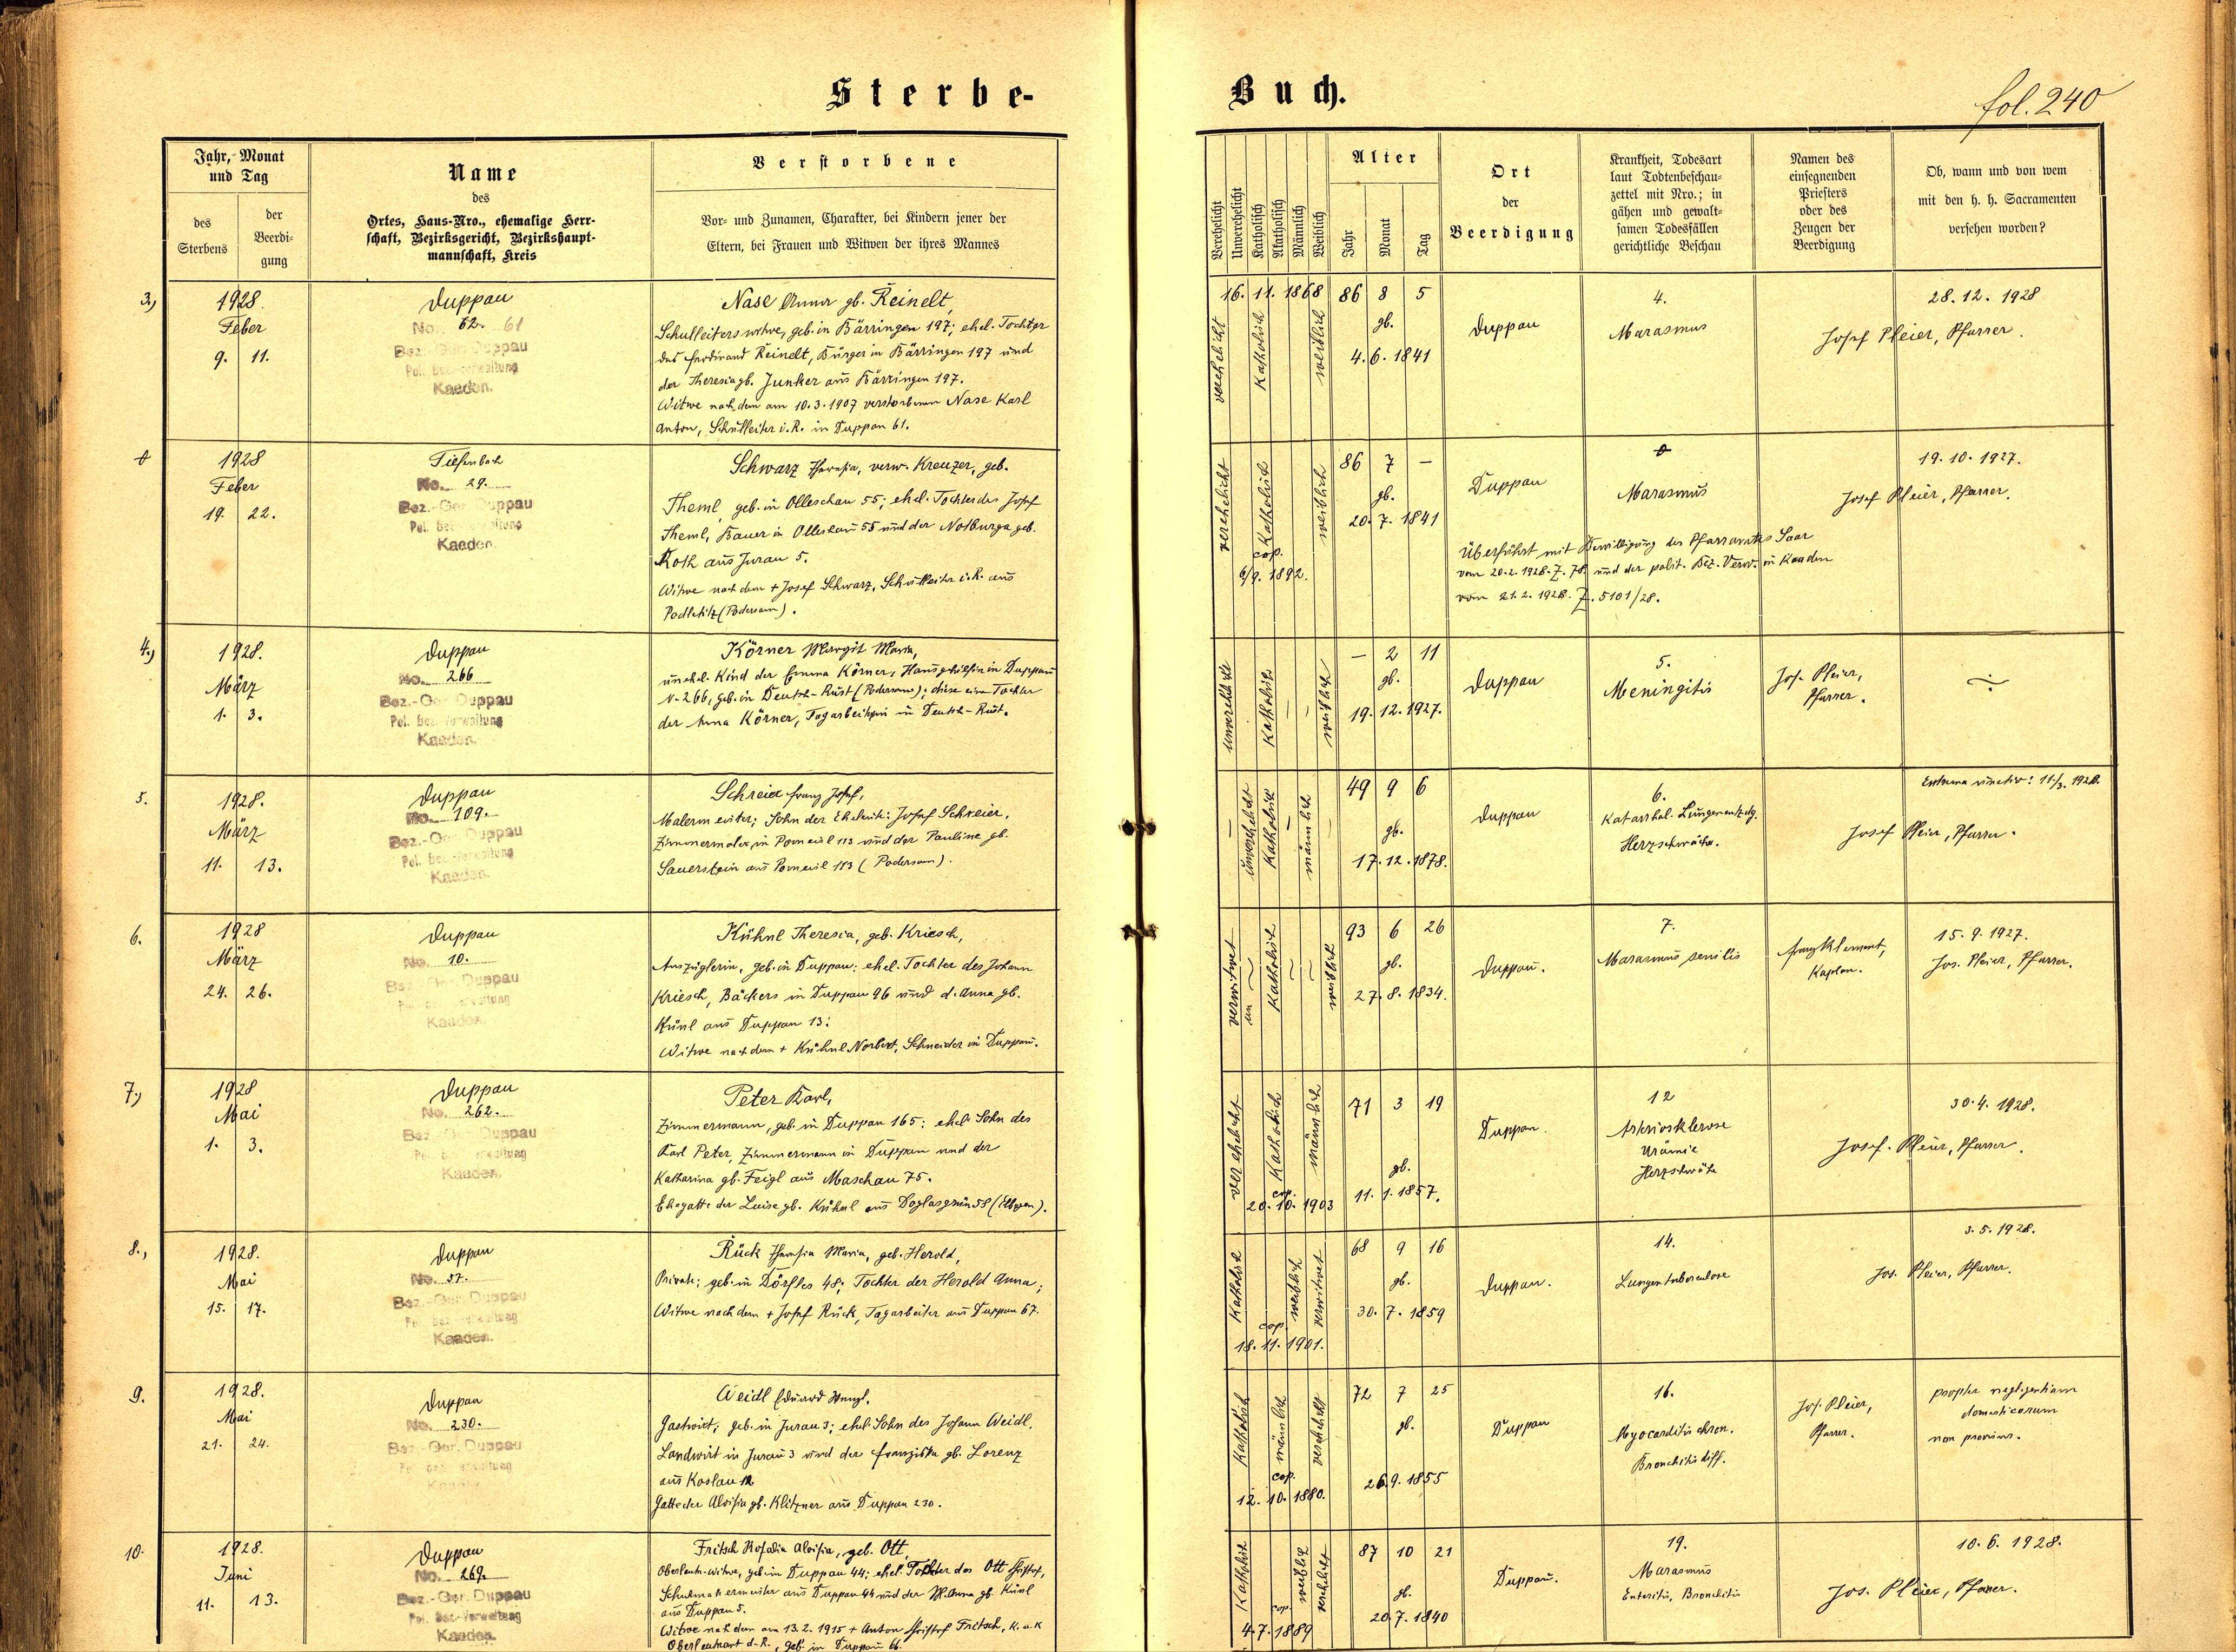 Sterbe-
Buch.
fol. 240
Jahr, Monat
und Tag
des
Sterbens
der
Beerdi-
gung
Name
des
Ortes, Haus-Nro., ehemalige Herr-
schaft, Bezirksgericht, Bezirkshaupt-
mannschaft, Kreis
Verstorbene
Vor- und Zunamen, Charakter, bei Kindern jener der
Eltern, bei Frauen und Witwen der ihres Mannes
Verehelicht
Unverehelicht
Katholisch
Akatholisch
Männlich
Weiblich
Alter
Jahr
Monat
Tag
Ort
der
Beerdigung
Krankheit, Todesart
laut Todtenbeschau-
zettel mit Nro.; in
gähen und gewalt-
samen Todesfällen
gerichtliche Beschau
Namen des
einsegnenden
Priesters
oder des
Zeugen der
Beerdigung
Ob, wann und von wem
mit den h. h. Sacramenten
versehen worden?
3.)
1928.
Feber
9. 11.
Duppau
No. 62. 61
Bez.-Ger. Duppau
Pol. Bez.-Verwaltung
Kaaden.
Nase Anna gb. Reinelt,
Schulleiterswitwe, geb. in Bärringen 197; ehel. Tochter
des Ferdinand Reinelt, Bürger in Bärringen 197 und
der Theresia gb. Junker aus Bärringen 197.
Witwe nach dem am 10.3.1907 verstorbenen Nase Karl
Anton, Schulleiter i.R. in Duppau 61.
16. 11. 1868
verehelicht
Katholisch
weiblich
86 8 5
gb.
4. 6. 1841
Duppau
4.
Marasmus
28. 12. 1928
Josef Pleier, Pfarrer.
1928
Feber
19. 22.
Tiefenbach
No. 29.
Bez.-Ger. Duppau
Pol. Bez.-Verwaltung
Kaaden.
Schwarz Theresia, verw. Kreuzer, geb.
Theml, geb. in Olleschau 55; ehel. Tochter des Josef
Theml, Bauer in Olleschau 55 und der Notburga geb.
Roth aus Jurau 5.
Witwe nach dem + Josef Schwarz, Schulleiter i.R. aus
Podletitz (Podersam).
verehelicht
Katholisch
weiblich
cop.
6/9. 1892.
86 7 —
gb.
20. 7. 1841
Duppau
Marasmus
19. 10. 1927.
Josef Pleier, Pfarrer.
Überführt mit Bewilligung des Pfarramtes Saar
vom 20.2.1928. Z. 78. und der polit. Bez. Verw. in Kaaden
vom 21.2.1928. Z. 5101/28.
4.)
1928.
März
1. 3.
Duppau
No. 266
Bez.-Ger. Duppau
Pol. Bez.-Verwaltung
Kaaden.
Körner Margit Maria,
unehel. Kind der Emma Körner, Hausgehilfin in Duppau
N-266, geb. in Deutsch-Rust (Podersam); diese eine Tochter
der Anna Körner, Tagarbeiterin in Deutsch-Rust.
unverehelicht
Katholisch
weiblich
— 2 11
gb.
19. 12. 1927.
Duppau
5.
Meningitis
Jos. Pleier,
Pfarrer.
5.
1928.
März
11. 13.
Duppau
No. 109.
Bez.-Ger. Duppau
Pol. Bez.-Verwaltung
Kaaden.
Schreier Franz Josef,
Malermeister; Sohn der Eheleute: Josef Schreier,
Zimmermaler in Pomeisl 113 und der Pauline gb.
Sauerstein aus Pomeisl 113 (Podersam).
unverehelicht
Katholisch
männlich
49 9 6
gb.
17. 12. 1878.
Duppau
6.
Katarrhal. Lungenentzdg.
Herzschwäche.
Extrema unctio: 11/3. 1928.
Josef Pleier, Pfarrer.
6.
1928
März
24. 26.
Duppau
No. 10.
Bez.-Ger. Duppau
Pol. Bez.-Verwaltung
Kaaden.
Kühnl Theresia, geb. Kriesch,
Auszüglerin, geb. in Duppau; ehel. Tochter des Johann
Kriesch, Bäckers in Duppau 96 und d. Anna gb.
Künl aus Duppau 13;
Witwe nach dem + Kühnl Norbert, Schneider in Duppau.
verwitwet
Katholisch
weiblich
93 6 26
gb.
27. 8. 1834.
Duppau.
7.
Marasmus senilis
Franz Klement,
Kaplan.
15. 9. 1927.
Jos. Pleier, Pfarrer.
7.)
1928
Mai
1. 3.
Duppau
No. 262.
Bez.-Ger. Duppau
Pol. Bez.-Verwaltung
Kaaden.
Peter Karl,
Zimmermann, geb. in Duppau 165; ehel. Sohn des
Karl Peter, Zimmermann in Duppau und der
Katharina gb. Feigl aus Maschau 75.
Ehegatte der Luise gb. Kühnl aus Doglasgrün 58 (Elbogen).
verehelicht
Katholisch
männlich
cop.
20. 10. 1903
71 3 19
gb.
11. 1. 1857.
Duppau.
12
Arteriosklerose
Urämie
Herzschwäche
30. 4. 1928.
Josef Pleier, Pfarrer.
8.,
1928.
Mai
15. 17.
Duppau
No. 57.
Bez.-Ger. Duppau
Pol. Bez.-Verwaltung
Kaaden.
Rück Theresia Maria, geb. Herold,
Private; geb. in Dörfles 48; Tochter der Herold Anna;
Witwe nach dem + Josef Rück, Tagarbeiter aus Duppau 67.
Katholisch
weiblich
verwitwet
cop.
18. 11. 1901.
68 9 16
gb.
30. 7. 1859
Duppau.
14.
Lungentuberculose
3. 5. 1928.
Jos. Pleier, Pfarrer.
9.
1928.
Mai
21. 24.
Duppau
No. 230.
Bez.-Ger. Duppau
Pol. Bez.-Verwaltung
Weidl Eduard Wenzl.
Gastwirt; geb. in Jurau 3; ehel. Sohn des Johann Weidl,
Landwirt in Jurau 3 und der Franziska gb. Lorenz
aus Koslau 12
Gatte der Aloisia gb. Klitzner aus Duppau 230.
Katholisch
männlich
verehelicht
cop.
12. 10. 1880.
72 7 25
gb.
26. 9. 1855
Duppau
16.
Myocarditis chron.
Bronchitis diff.
Jos. Pleier,
Pfarrer.
propter negligentiam
domesticorum
non provisus.
10.
1928.
Juni
11. 13.
Duppau
No. 269.
Bez.-Ger. Duppau
Pol. Bez.-Verwaltung
Kaaden.
Fritsch Rosalia Aloisia, geb. Ott,
Oberleutn. Witwe, geb. in Duppau 44; ehel. Tochter des Ott
Schuhmachermeister aus Duppau 44 und der M. Anna gb. Künl
aus Duppau 5.
Witwe nach dem am 13.2.1915 + Anton Fritsch, K.u.K
Oberleutnant d.R., geb. in Duppau 66.
Katholisch
weiblich
verehelicht
cop.
4. 7. 1889
87 10 21
gb.
20. 7. 1840
Duppau.
19.
Marasmus
Enteritis, Bronchitis
10. 6. 1928.
Jos. Pleier, Pfarrer.